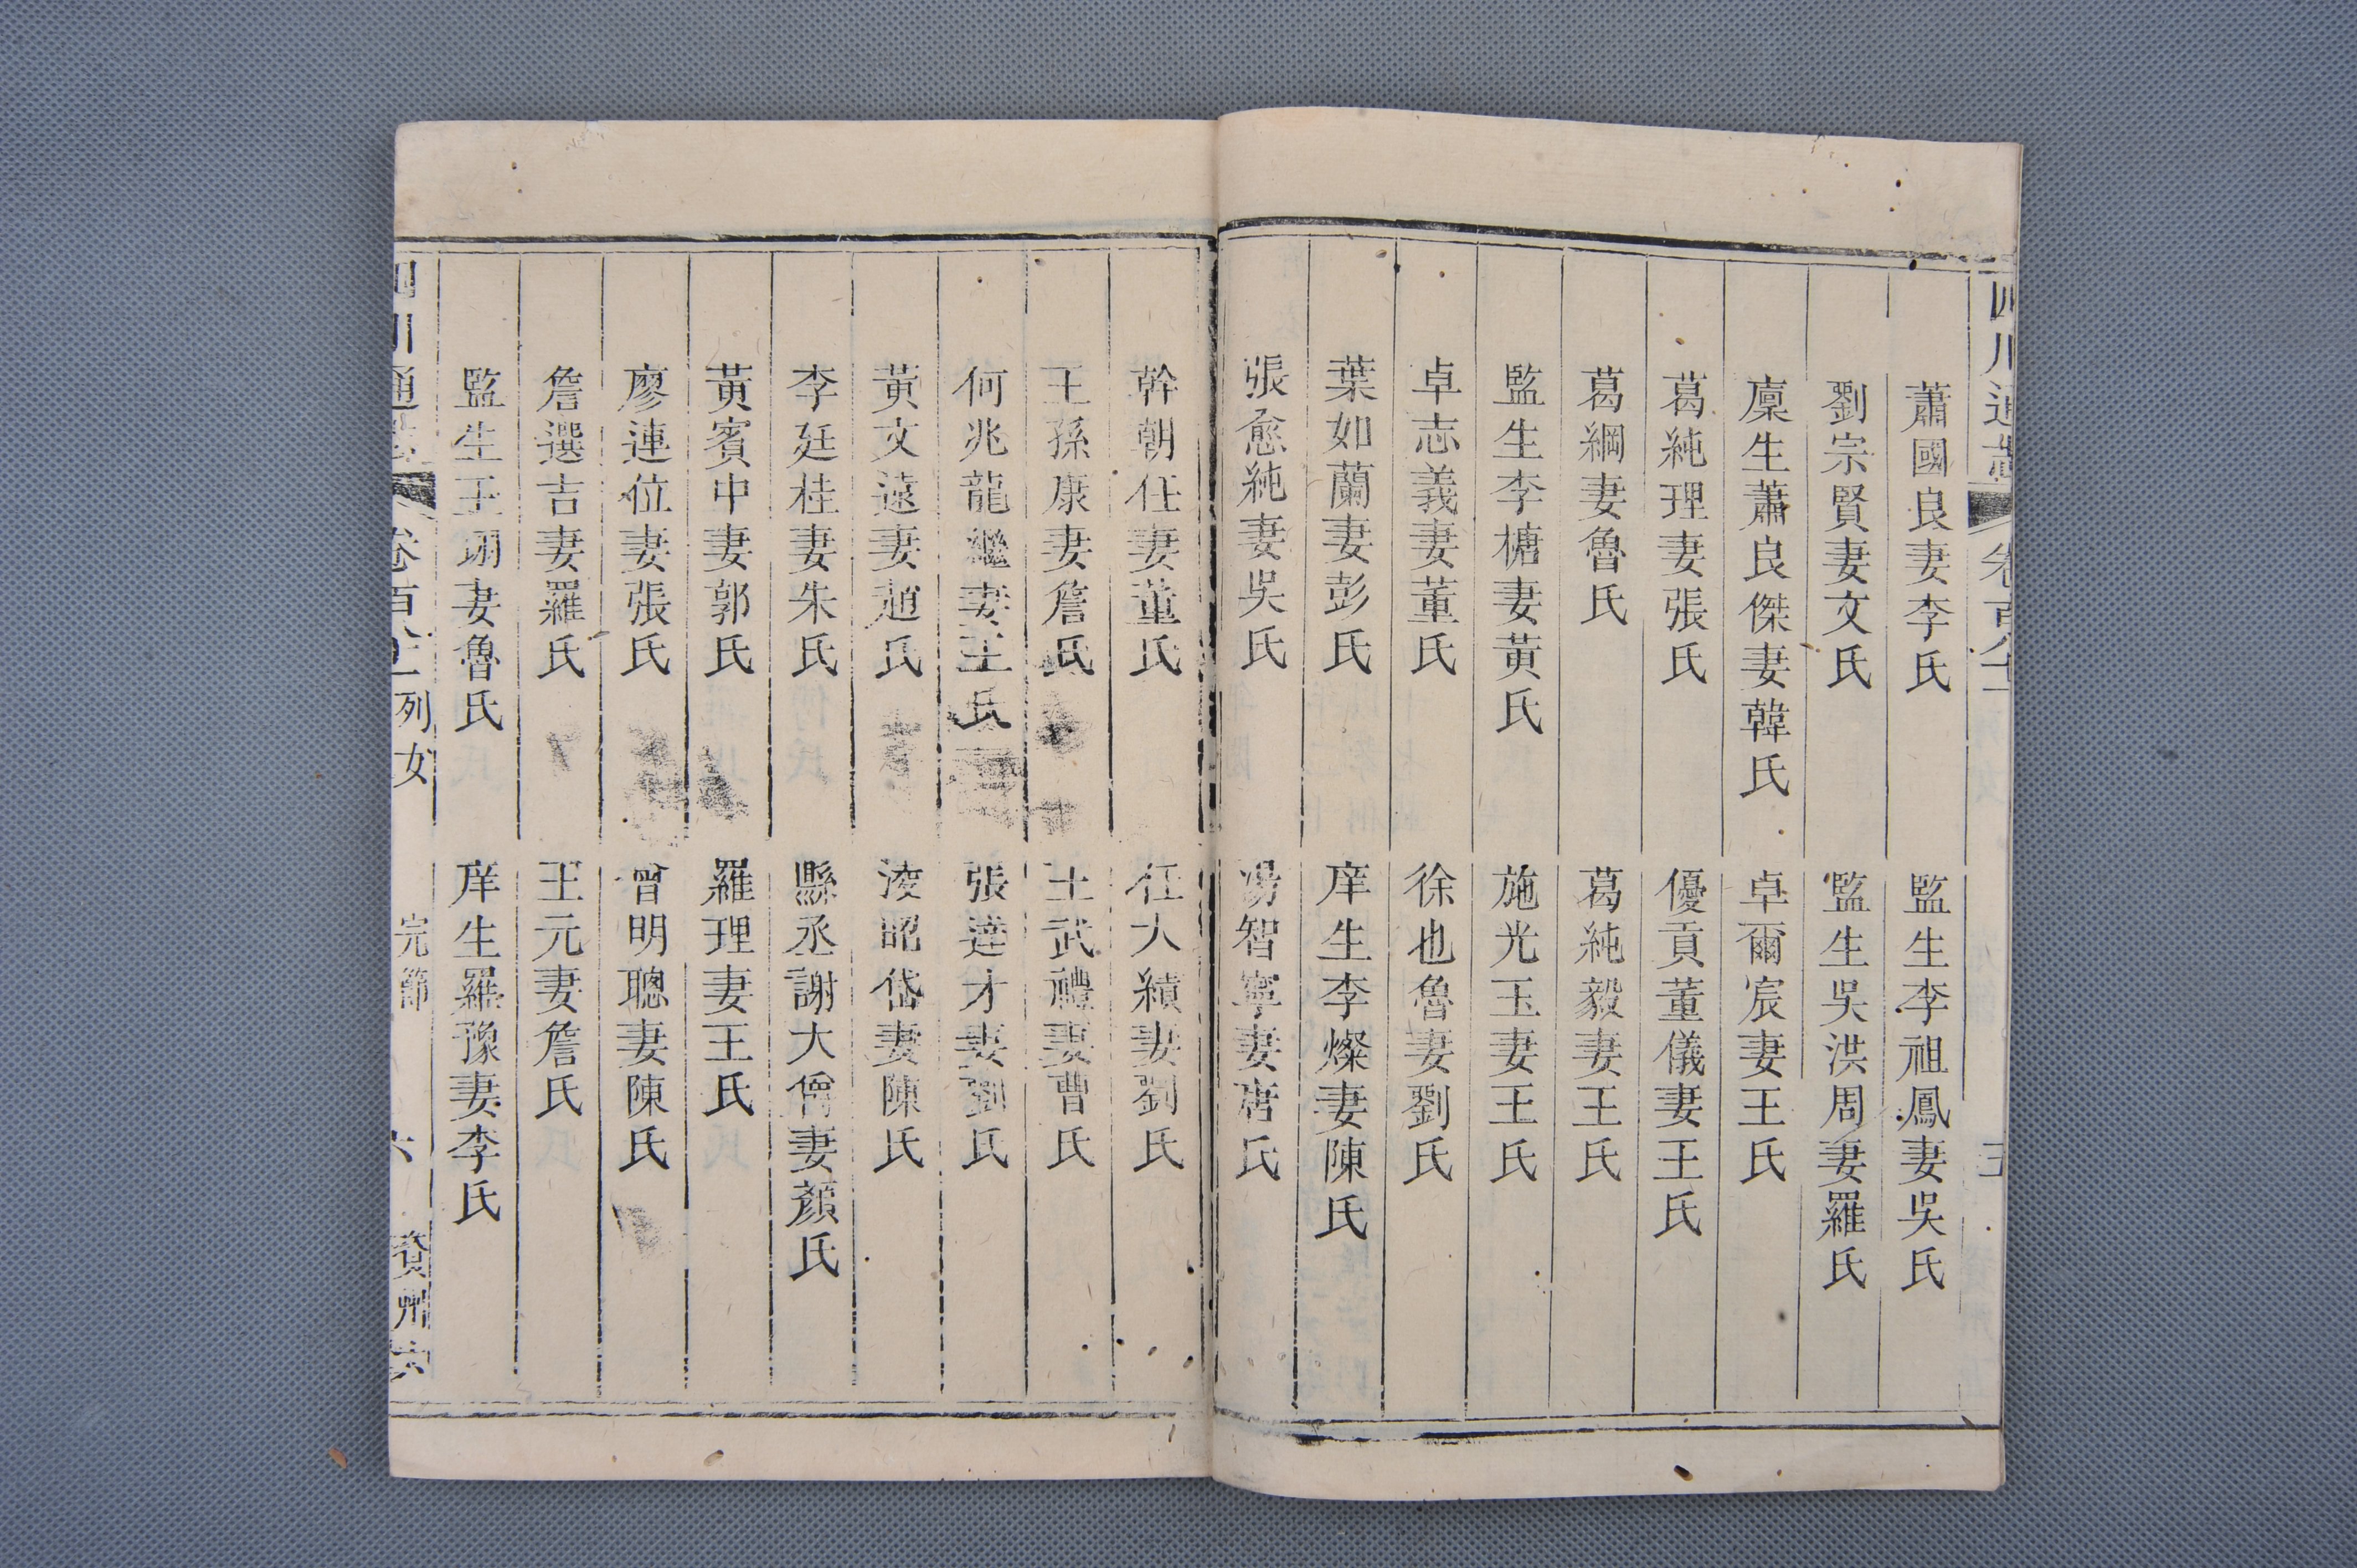 四川通志 卷百八十一
蕭國良妻李氏 監生李祖鳳妻吳氏
劉宗賢妻文氏 監生吳洪周妻羅氏
廩生蕭良傑妻韓氏 卓爾宸妻王氏
葛純理妻張氏 優貢董儀妻王氏
葛綱妻魯氏 葛純毅妻王氏
監生李榶妻黃氏 施光玉妻王氏
卓志義妻董氏 徐也魯妻劉氏
葉如蘭妻彭氏 庠生李燦妻陳氏
張愈純妻吳氏 湯智寧妻唐氏
幹朝任妻董氏 任大績妻劉氏
王孫康妻詹氏 王武禮妻曹氏
何兆龍繼妻王氏 張達才妻劉氏
黃文遠妻趙氏 淩昭岱妻陳氏
李廷桂妻朱氏 縣丞謝大僧妻顏氏
黃賓中妻郭氏 羅理妻王氏
廖連位妻張氏 曾明聰妻陳氏
詹選吉妻羅氏 王元妻詹氏
監生王翊妻魯氏 庠生羅豫妻李氏
四川通志 卷百八十一 列女 完節 六 資州六